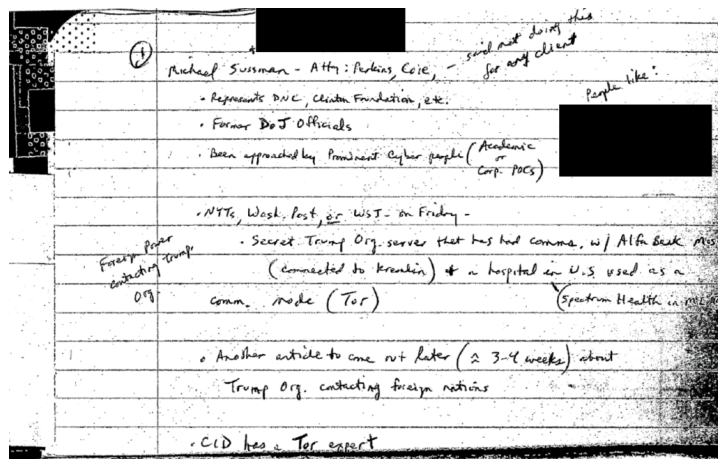 Michael Sussman - Atty: Perkins, Coie, - said not doing this
for any client
People like:
• Represents DNC, Clinton Foundation, etc.
• Former DoJ Officials
• Been approached by Prominent Cyber people (Academic
or
Corp. POCs)
• NYTs, Wash. Post, or WSJ - on Friday -
• Secret Trump Org. server that has had comms. w/ Alfa Bank
Foreign Power
contacting Trump
Org.
(connected to Kremlin) + a hospital in U.S. used as a
comm. node (Tor)
(Spectrum Health in
• Another article to come out later (≈ 3-4 weeks) about
Trump Org. contacting foreign nations
• CID has a Tor expert